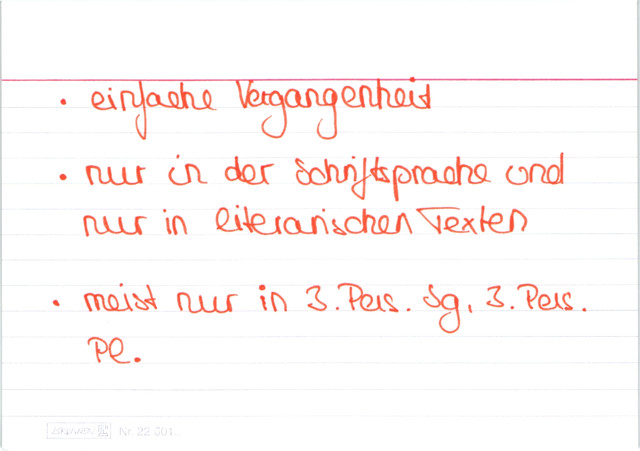 • einfache Vergangenheit
• nur in der Schriftsprache und
nur in literarischen Texten
• meist nur in 3. Pers. Sg, 3. Pers.
Pl.
Nr. 22 601